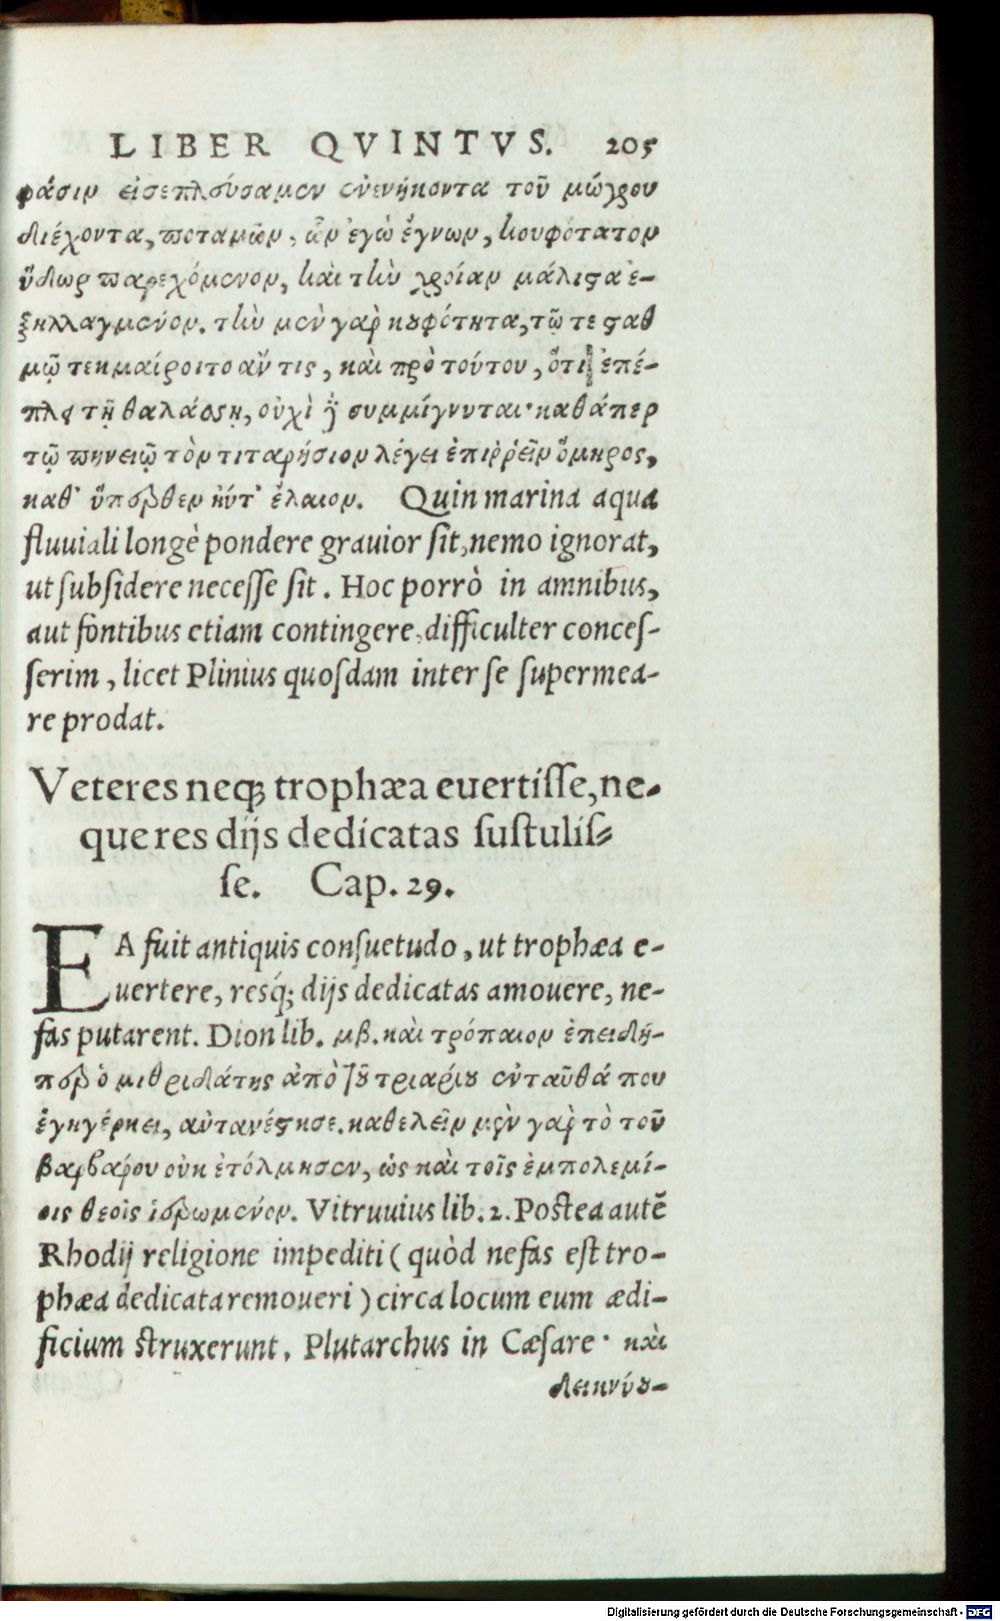 LIBER QVINTVS. 205
φάσιν εἰσεπλούσαμεν ἐνενήκοντα τοῦ μώχρου
διέχοντα, ποταμῶν, ὧν ἐγὼ ἔγνων, κουφότατον
ὕδωρ παρεχόμενον, καὶ τὴν χροίαν μάλιστα ἐ-
ξηλλαγμένον. τὴν μὲν γὰρ κουφότητα, τῷ τε σταθ
μῷ τεκμαίροιτο αὔν τις, καὶ πρὸ τούτου, ὅτι ἐπέ-
πλει τῇ θαλάσσῃ, οὐχὶ ἢ συμμίγνυται· καθάπερ
τῷ πηνειῷ τὸν τιταρήσιον λέγει ἐπιῤῥεῖν ὅμηρος,
καθ' ὕπερθεν ἠύτ' ἔλαιον. Quin marina aqua
fluuiali longè pondere grauior sit, nemo ignorat,
ut subsidere necesse sit. Hoc porrò in amnibus,
aut fontibus etiam contingere, difficulter conces-
serim, licet Plinius quosdam inter se supermea-
re prodat.
Veteres neq; trophæa euertisse, ne-
que res dijs dedicatas sustulis-
se. Cap. 29.
EA fuit antiquis consuetudo, ut trophæa e-
uertere, resq́; dijs dedicatas amouere, ne-
fas putarent. Dion lib. μβ. καὶ τρόπαιον ἐπειδή-
περ ὁ μιθριδάτης ἀπὸ τοῦ τριαρίου ἐνταῦθά που
ἐγηγέρκει, αὐτανέστησε. καθελεῖν μὲν γὰρ τὸ τοῦ
βαρβαρου οὐκ ἐτόλμησεν, ὡς καὶ τοῖς ἐμπολεμί-
οις θεοῖς ἱερωμένον. Vitruuius lib. 2. Postea autẽ
Rhodij religione impediti (quòd nefas est tro-
phæa dedicata remoueri) circa locum eum ædi-
ficium struxerunt. Plutarchus in Cæsare· καὶ
δεικνύου-
Digitalisierung gefördert durch die Deutsche Forschungsgemeinschaft - DFG